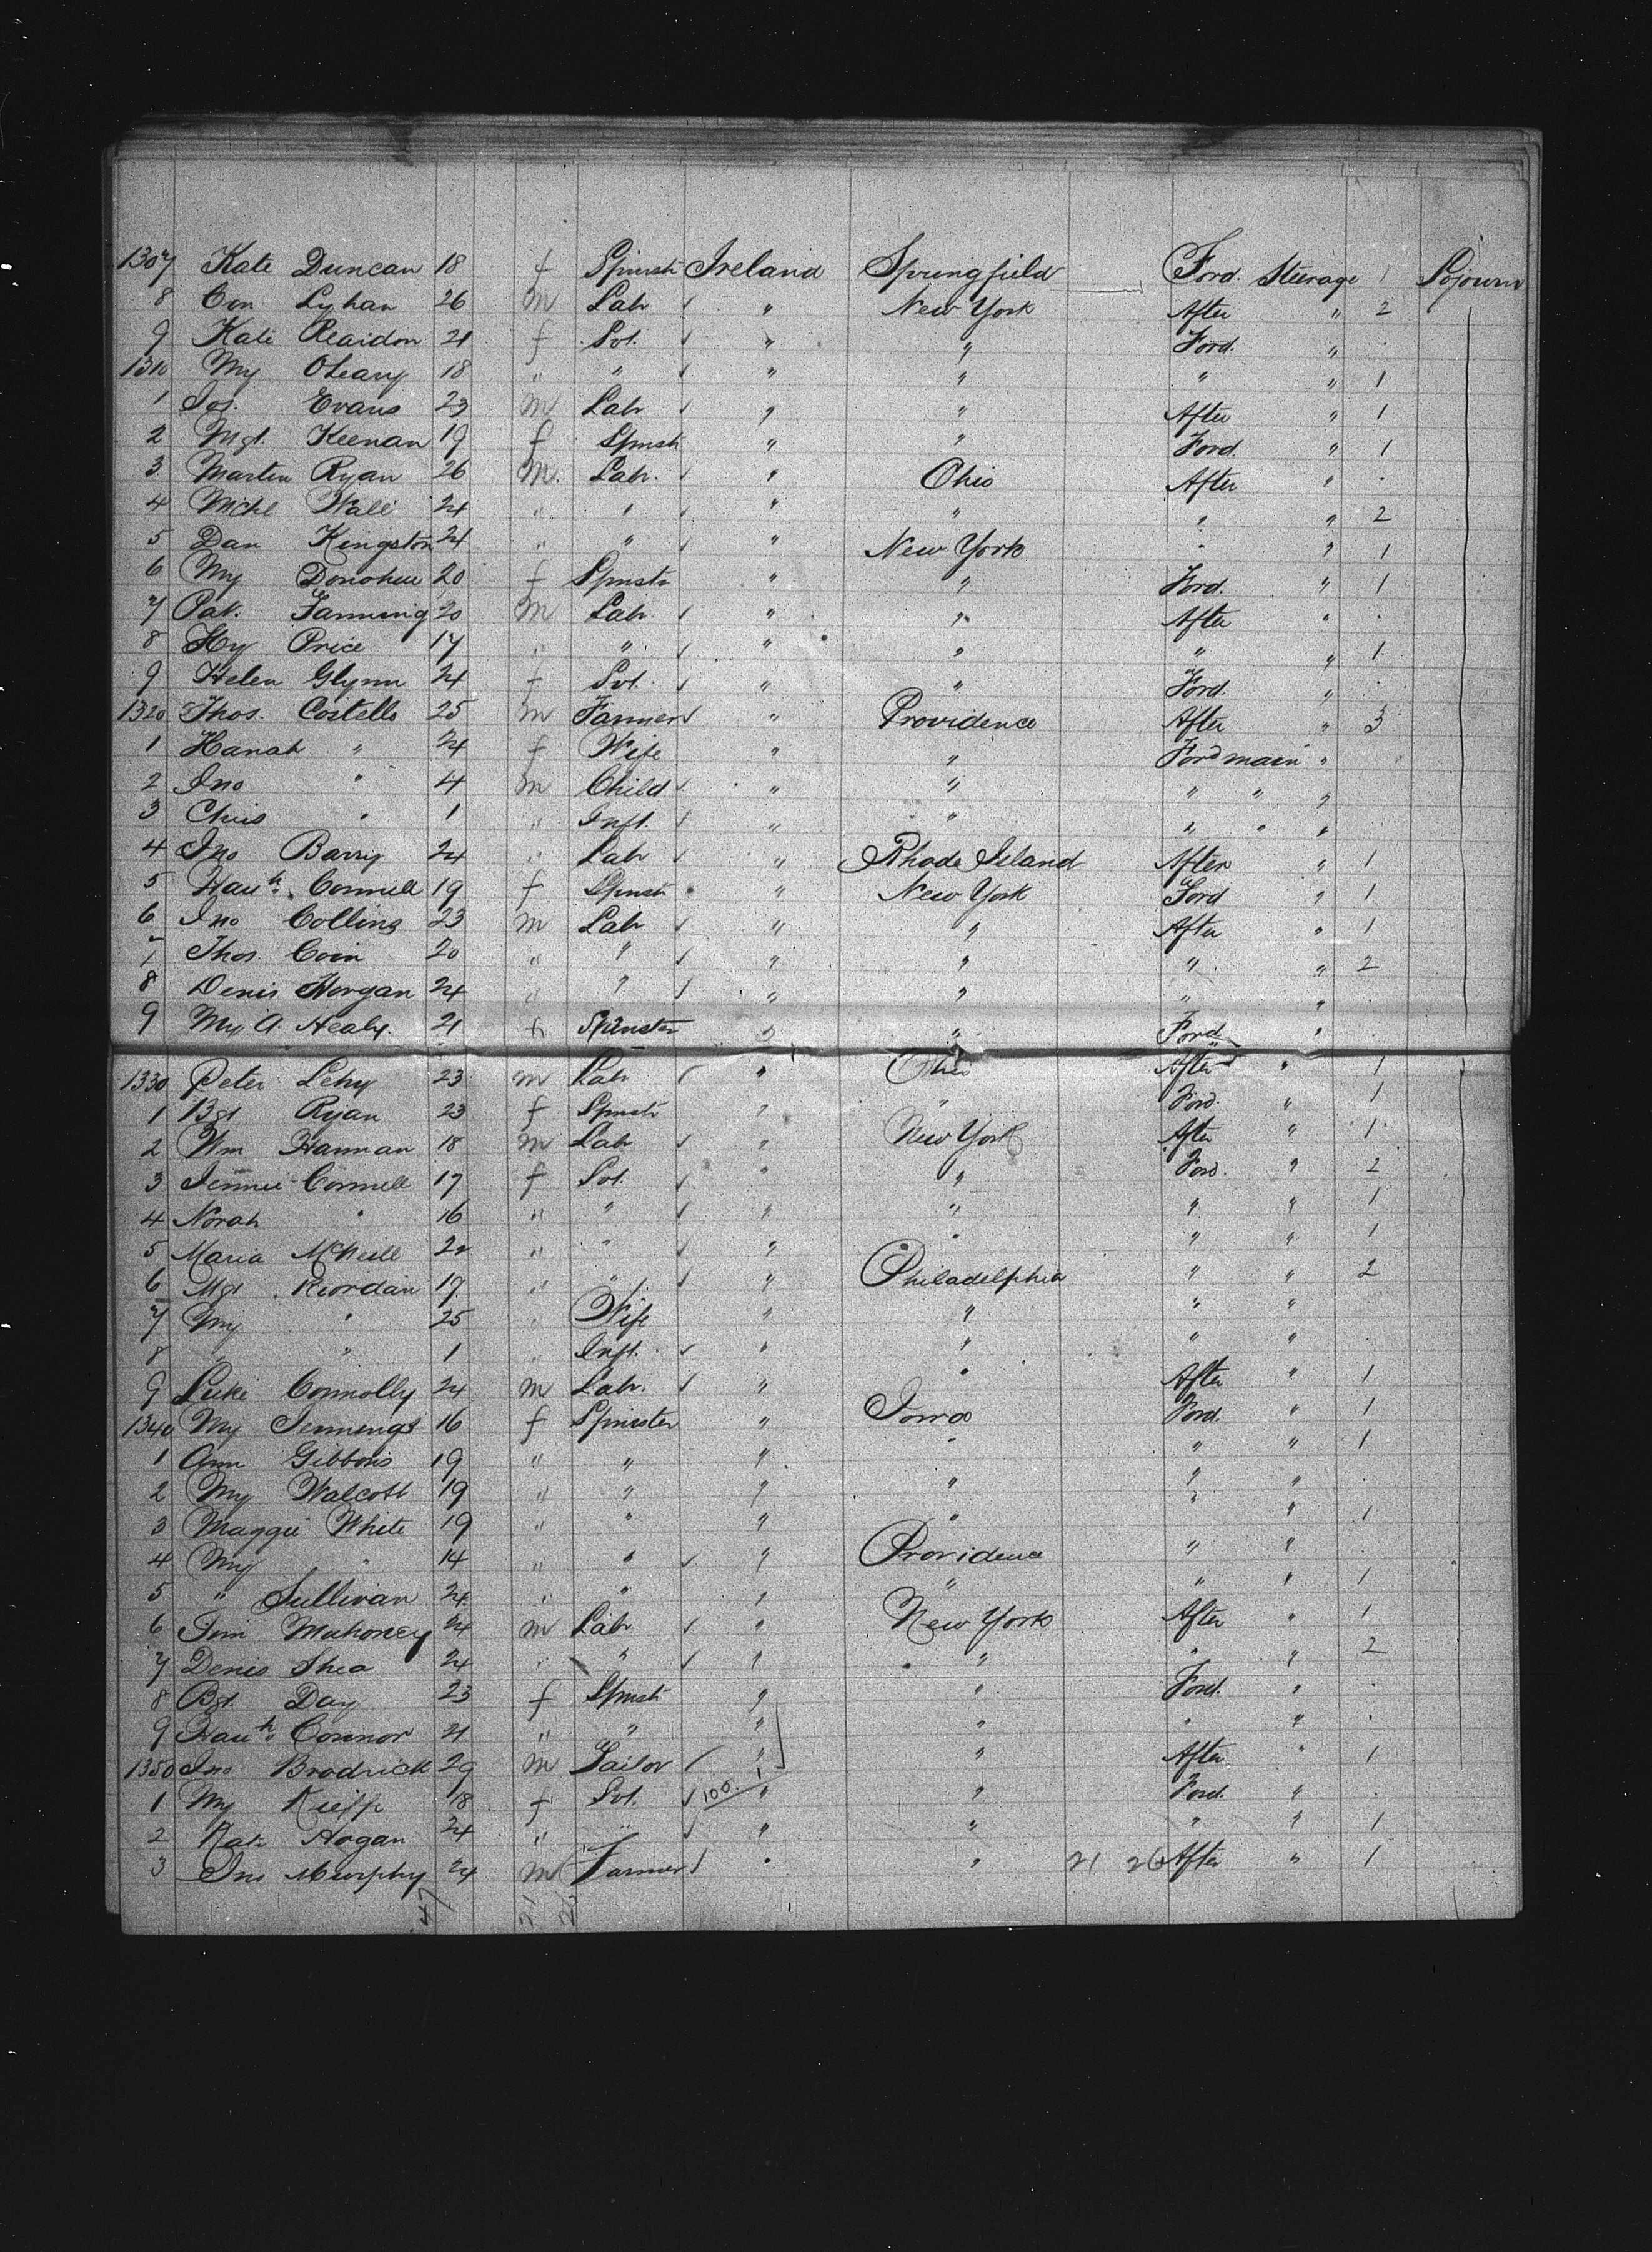 1307 Kate Duncan 18 f Spinstr Ireland Springfield Ford. Steerage 1 Sojourn
8 Con Lyhan 26 m Labr ✓ " New York After " 2
9 Kate Reaidon 21 f Svt. ✓ " " Ford. " .
1310 My OLeary 18 " " ✓ " " " " 1
1 Jos. Evans 23 m Labr ✓ " " After " 1
2 Mgt. Keenan 19 f Spinstr " " Ford. " 1
3 Martin Ryan 26 m. Labr. ✓ " Ohio After " .
4 Michl Wall 24 " " ✓ " " " " 2
5 Dan Kingston 24 " " ✓ " New York " " 1
6 My Donohue 20 f Spinstr " " Ford. " 1
7 Pat. Fanning 20 m Labr ✓ " " After " .
8 Hy Price 17 " " ✓ " " " " 1
9 Helen Glynn 24 f Svt. ✓ " " Ford. " .
1320 Thos. Costello 25 m Farmer ✓ " Providence After " 3
1 Hanah " 24 f Wife " " Ford main "
2 Jno " 4 m Child ✓ " " " " "
3 Chris " 1 " Inft. ✓ " " " " "
4 Jno Barry 24 " Labr ✓ " Rhode Island After " 1
5 Hanh. Connell 19 f Spinstr " New York Ford " 1
6 Jno Collins 23 m Labr ✓ " " After " 1
7 Thos. Coin 20 " " ✓ " " " " 2
8 Denis Horgan 24 " " ✓ " " " " .
9 My A. Healy. 21 f Spinster " " Ford " .
1330 Peter Lehy 23 m Labr ✓ " Ohio After " 1
1 Bgt Ryan 23 f Spinstr " " Ford. " 1
2 Wm Hannan 18 m Labr ✓ " New York After " 1
3 Jennie Connell 17 f Svt. ✓ " " Ford. " 2
4 Norah " 16 " " ✓ " " " " 1
5 Maria McNeill 22 " " ✓ " " " " 1
6 Mgt Riordan 19 " " ✓ " Philadelphia " " 2
7 My " 25 " Wife " " " "
8 " " 1 " Inft. ✓ " " " " .
9 Luke Connolly 24 m Labr. ✓ " " After " 1
1340 My Jennings 16 f Spinster " Iowa Ford. " 1
1 Ann Gibbons 19 " " " " " " 1
2 My Walcott 19 " " " " " " .
3 Maggie White 19 " " " " " " 1
4 My " 14 " " ✓ " Providence " " .
5 " Sullivan 24 " " " " " " 1
6 Tim Mahoney 24 m Labr ✓ " New York After " 1
7 Denis Shea 24 " " ✓ " " " " 2
8 Bgt. Day 23 f Spinstr " " Ford. " .
9 Hanh. Connor 21 " " " " " " .
1350 Jno Brodrick 29 m Tailor ✓ " " After " 1
1 My Kieff 18 f Svt. ✓ 100 " " Ford. " .
2 Kate Hogan 24 " " ✓ " " " " 1
3 Jno Murphy 24 m Farmer ✓ " " 21 26 After " 1
47 21 26